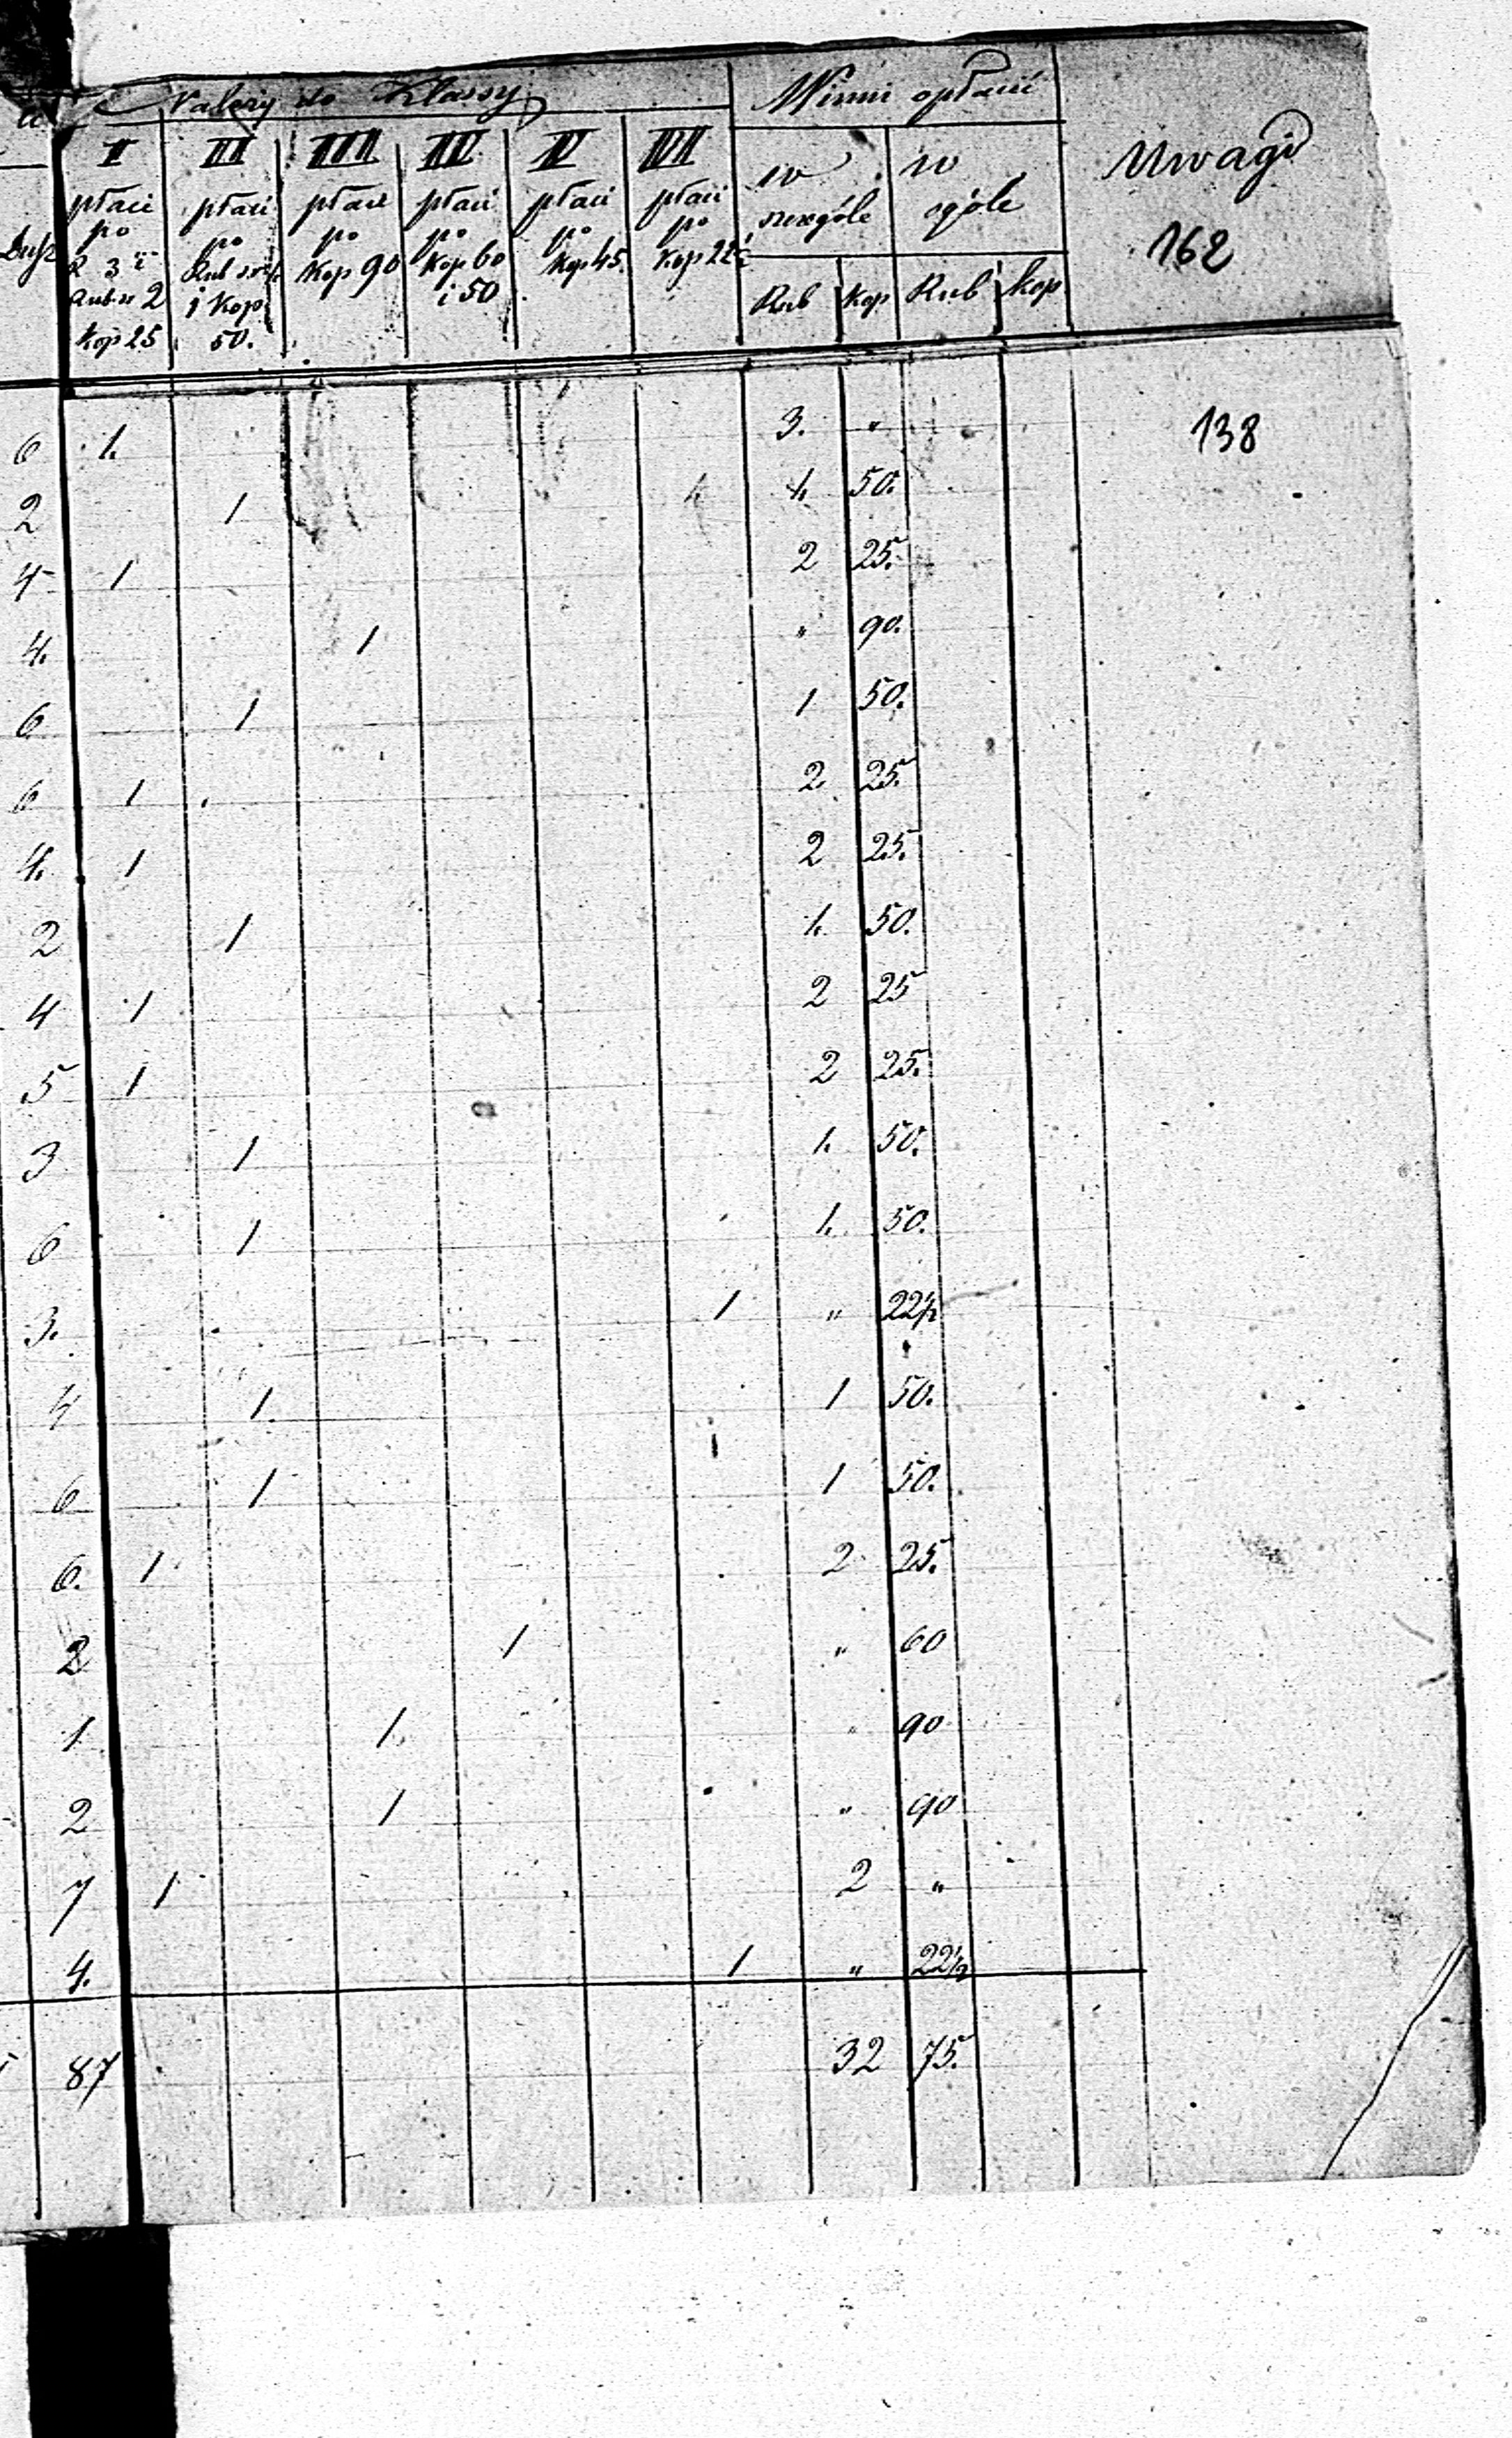 Należy do Klassy
Winni opłacić
Uwagi
162
Dusz
I płaci po R 3 i Rub sr 2 Kop 25
II płaci po Rub sr 1 i Kop 50.
III płaci po Kop 90
IV płaci po Kop 60 i 50
V płaci po Kop 45.
VI płaci po Kop 22½
w szczególe
w ogóle
Rub Kop Rub Kop
6 1. 3. " 138
2 1 1. 50.
4 1 2 25.
4. 1 " 90.
6 1 1 50.
6 1 2 25
4. 1 2 25.
2 1 1. 50.
4 1 2 25
5 1 2 25.
3 1 1. 50.
6 1 1. 50.
3. 1 " 22½
4 1. 1 50.
6 1 1 50.
6. 1 2 25.
2 1 " 60
1 1. " 90
2 1 " 90
7 1 2 "
4. 1 " 22½
87 32 75.